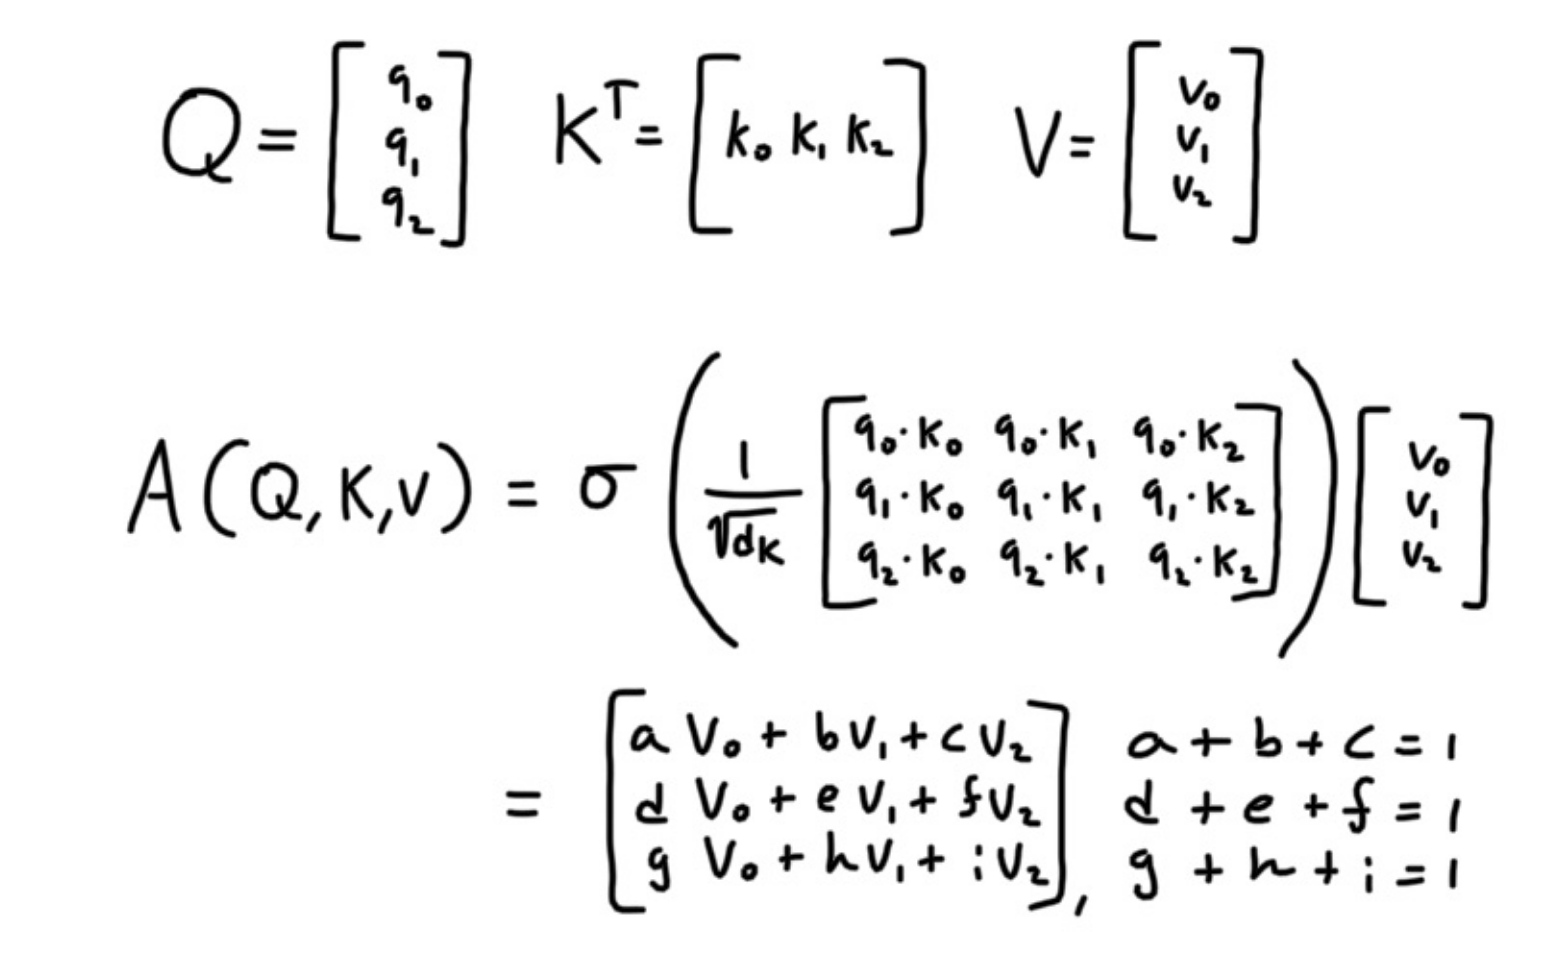 Q = [ q₀ q₁ q₂ ] Kᵀ = [ k₀ k₁ k₂ ] V = [ v₀ v₁ v₂ ]
A(Q,K,V) = σ ( 1/√dₖ [ q₀·k₀ q₀·k₁ q₀·k₂
q₁·k₀ q₁·k₁ q₁·k₂
q₂·k₀ q₂·k₁ q₂·k₂ ] ) [ v₀ v₁ v₂ ]
= [ a v₀ + b v₁ + c v₂ a + b + c = 1
d v₀ + e v₁ + f v₂ d + e + f = 1
g v₀ + h v₁ + i v₂ ], g + h + i = 1